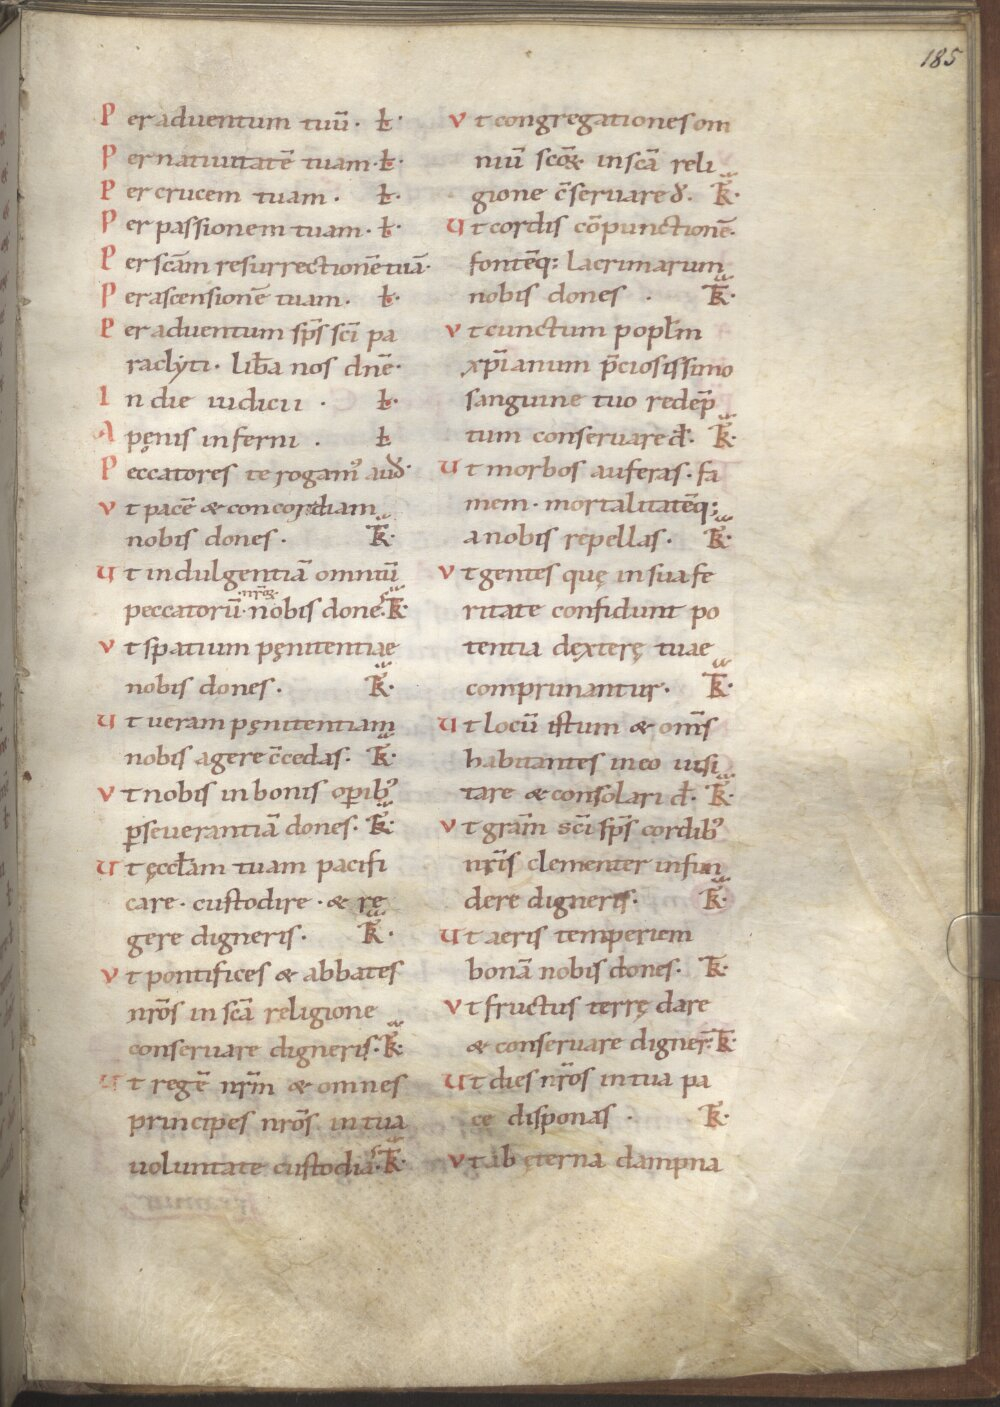 185
Per aduentum tuū· ł·
Per natiuitatē tuam· ł·
Per crucem tuam· ł·
Per passionem tuam· ł·
Per scām resurrectionē tuā·
Per ascensionē tuam· ł·
Per aduentum sp̄s scī pa
raclyti· lib̄a nos dn̄e·
In die iudicii · ł·
A pęnis inferni · ł
Peccatores te rogamꝰ aud̄·
Vt pacē & concordiam
nobis dones· k̄·
Ut indulgentiā omniū
peccatorū nr̄oꝝ nobis dones· k̄·
Vt spatium pęnitentiae
nobis dones· k̄·
Ut ueram pęnitentiam
nobis agere c̄cedas· k̄·
Vt nobis in bonis oꝑibꝰ
ꝑseuerantiā dones· k̄·
Ut ęccl̄am tuam pacifi
care· custodire· & re
gere digneris· k̄·
Vt pontifices & abbates
nr̄os in scā religione
conseruare digneris· k̄·
Ut regē nr̄m & omnes
principes nr̄os in tua
uoluntate custodias· k̄·
Vt congregationes om
niū scōꝝ in scā reli
gione c̄seruare đ· k̄·
Ut cordis cōpunctionē·
fontēq; lacrimarum
nobis dones · k̄·
Vt cunctum popl̄m
xp̄ianum p̄ciosissimo
sanguine tuo redēp
tum conseruare đ· k̄·
Ut morbos auferas· fa
mem· mortalitatēq;
a nobis repellas· k̄·
Vt gentes quę in sua fe
ritate confidunt po
tentia dęxterę tuae
comprimantur· k̄·
Ut locū istum & om̄s
habitantes in eo uisi
tare & consolari đ· k̄·
Vt gram̄ sc̄i sp̄s cordibꝰ
nr̄is clementer infun
dere digneris· k̄·
Ut aeris temperiem
bonā nobis dones· k̄·
Vt fructus terrę dare
& conseruare digner̄· k̄·
Ut dies nr̄os in tua pa
ce disponas · k̄·
Vt ab ęterna dampna